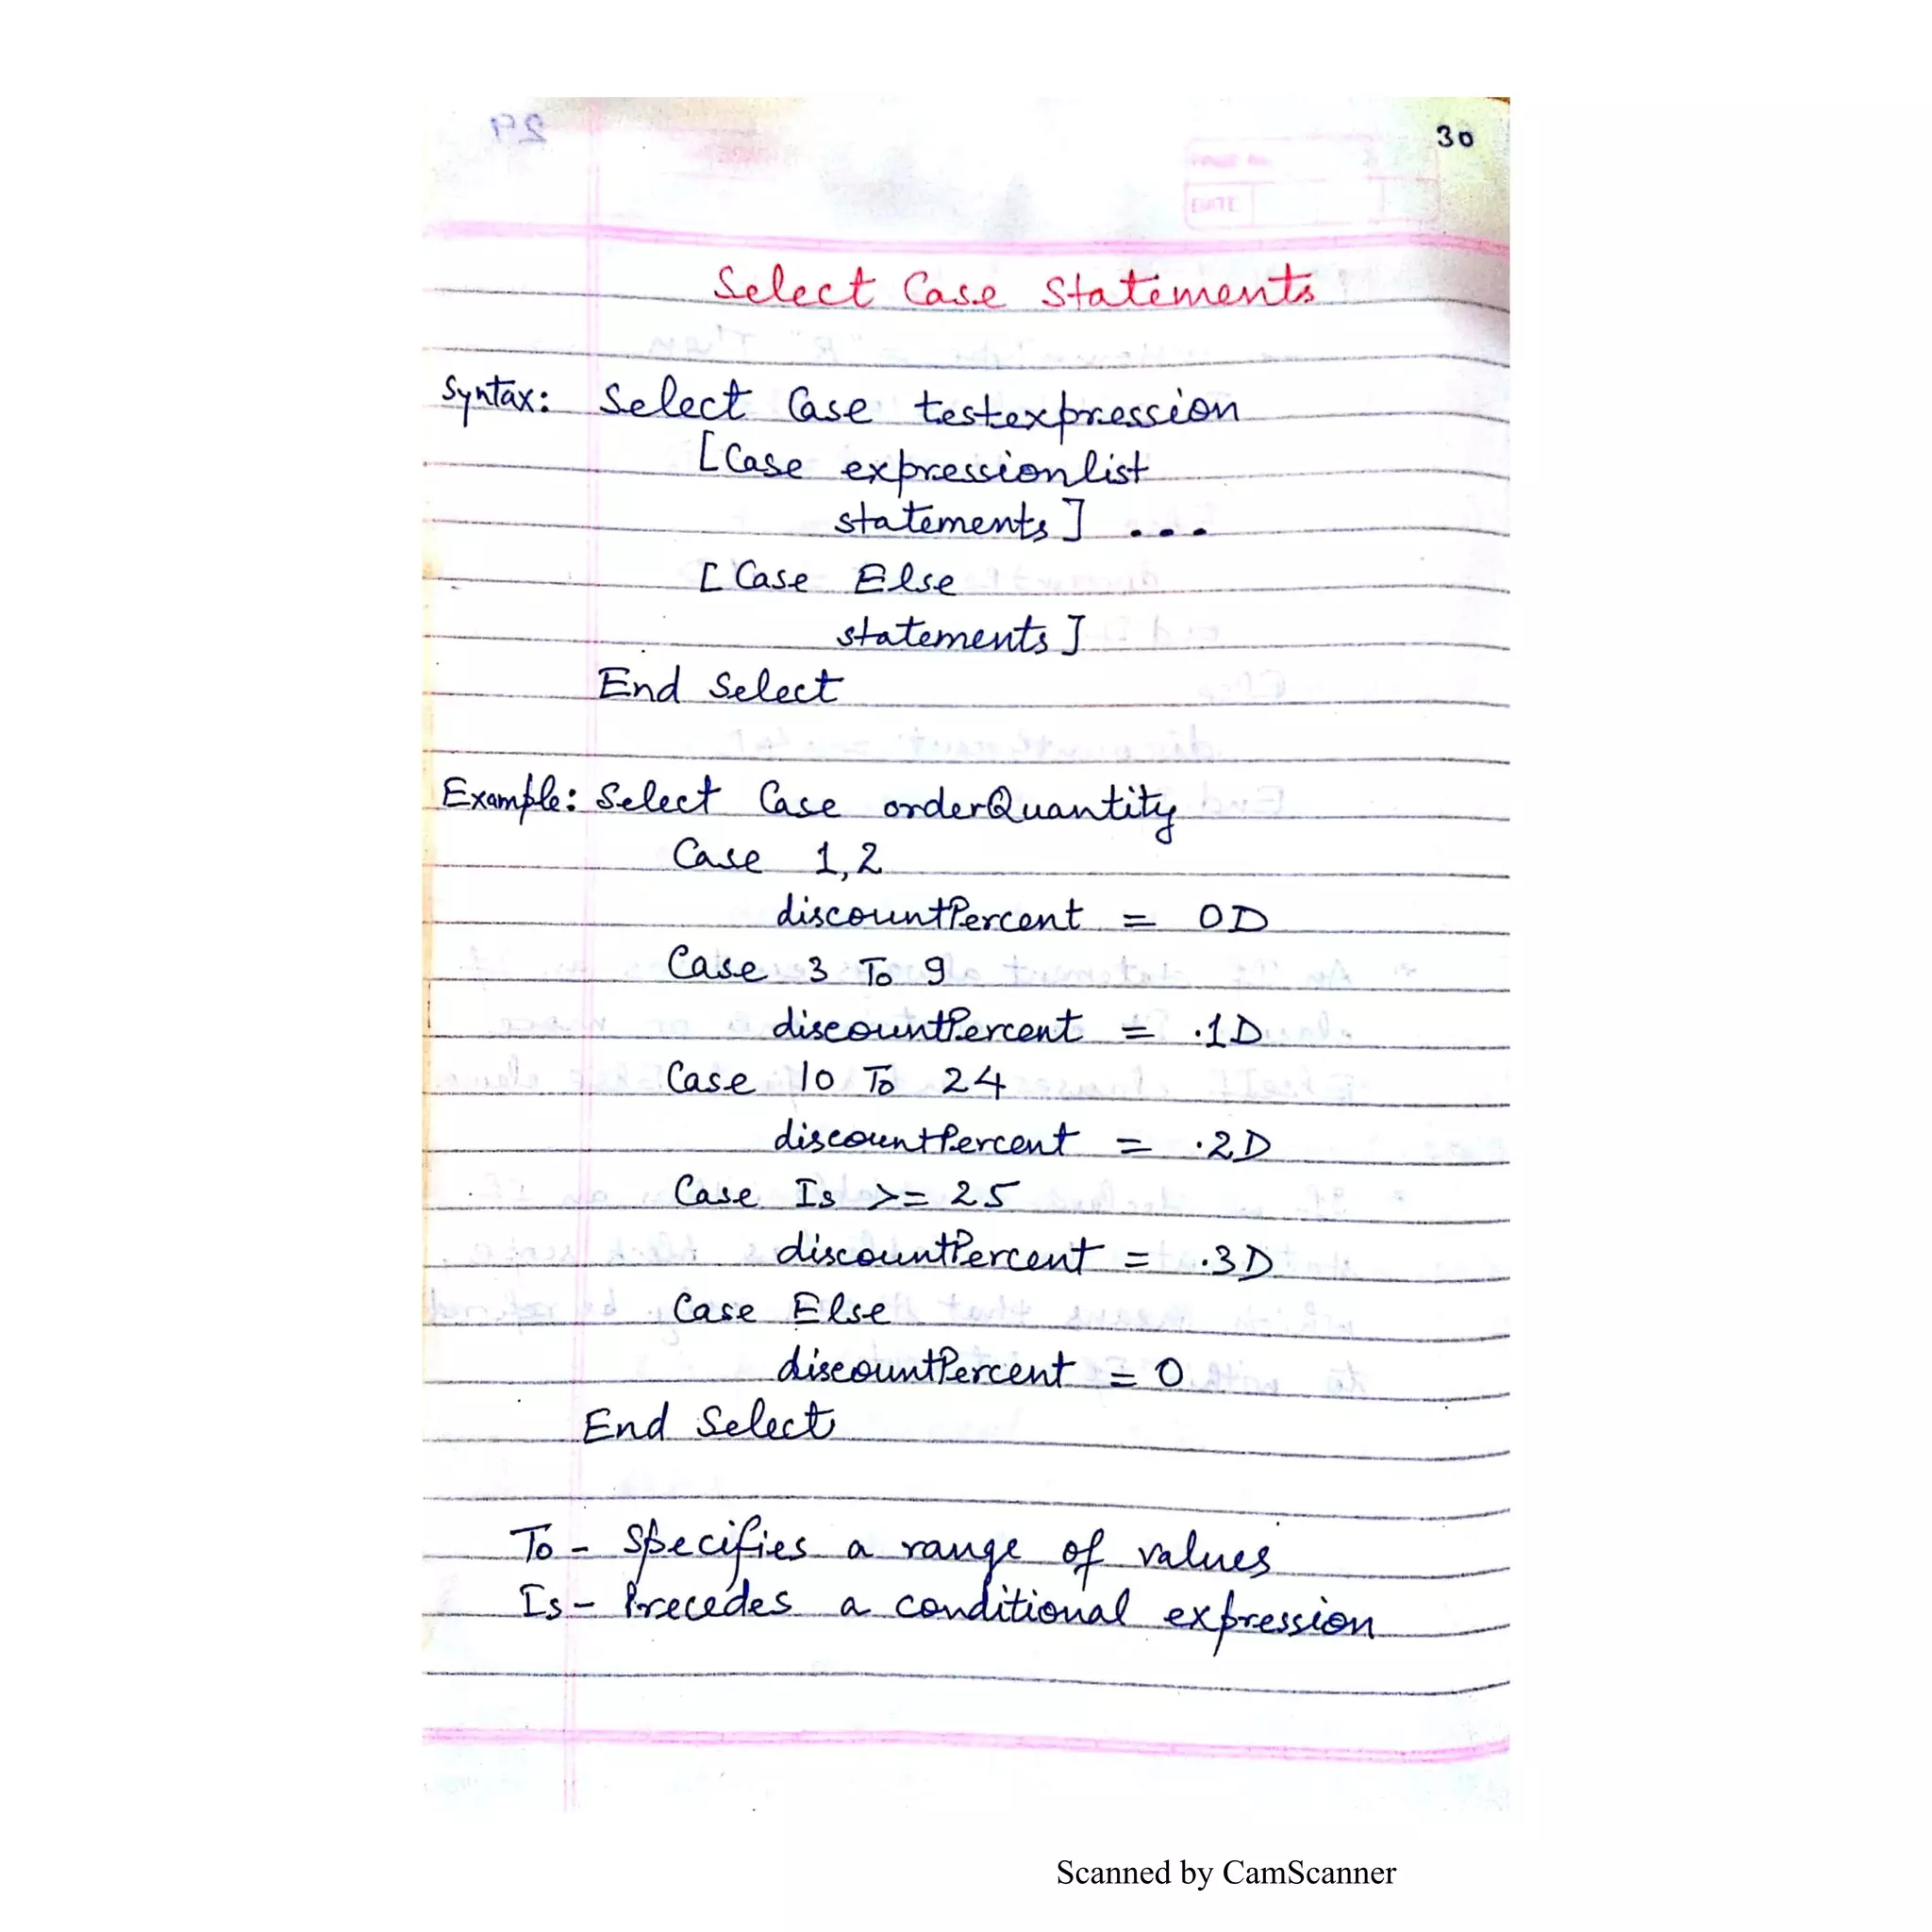 30
Select Case Statements
Syntax: Select Case testexpression
[Case expressionlist
statements] ...
[Case Else
statements]
End Select
Example: Select Case orderQuantity
Case 1,2
discountPercent = 0D
Case 3 To 9
discountPercent = .1D
Case 10 To 24
discountPercent = .2D
Case Is >= 25
discountPercent = .3D
Case Else
discountPercent = 0
End Select
To - Specifies a range of values
Is - Precedes a conditional expression
Scanned by CamScanner